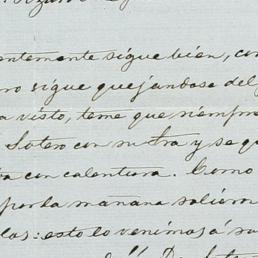 ntemente sigue bien, con
ro sigue quejandose del
a visto, teme que siempre
Sotero con su Sra y se qu
a con calentura. Como
por la mañana salim
las: esto lo venimos á sa